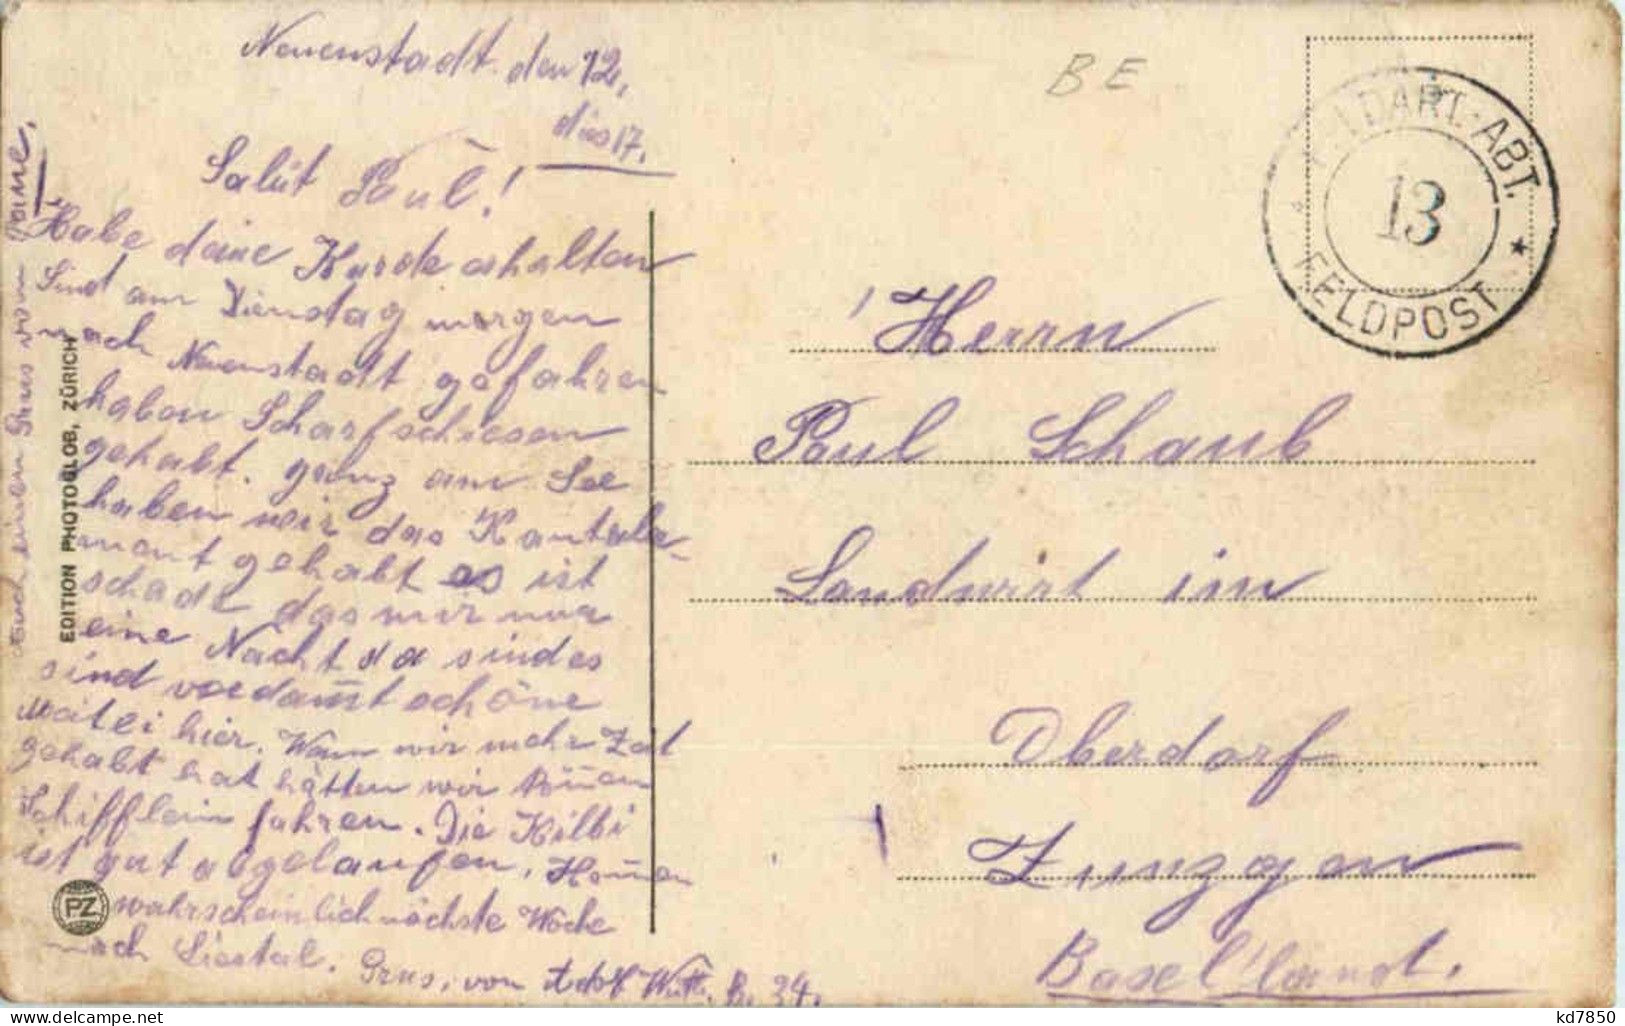 Neuenstadt. den 12.
dies 17.
Salüt Paul!
Habe deine Karde erhalten
Sind am Dienstag morgen
nach Neuenstadt gefahren
haben Scharfschiesen
gehabt. ganz am See
haben wir das Kantale-
ment gehabt es ist
schade das mir nur
eine Nacht da sind es
sind verdammt schöne
Meitei hier. Wenn wir mehr Zeit
gehabt hat hätten wir können
Schifflein fahren. Die Kilbi
ist gut abgelaufen. Komen
wahrscheinlich nächste Woche
nach Liestal. Grus. von Adolf B. 34.
Auch einen Grus vom
EDITION PHOTOGLOB, ZÜRICH
PZ
BE
FELDART.-ABT.
13
FELDPOST
Herrn
Paul Schaub
Landwirt im
Oberdorf
Zunzgen
Basel'land.
kd7850